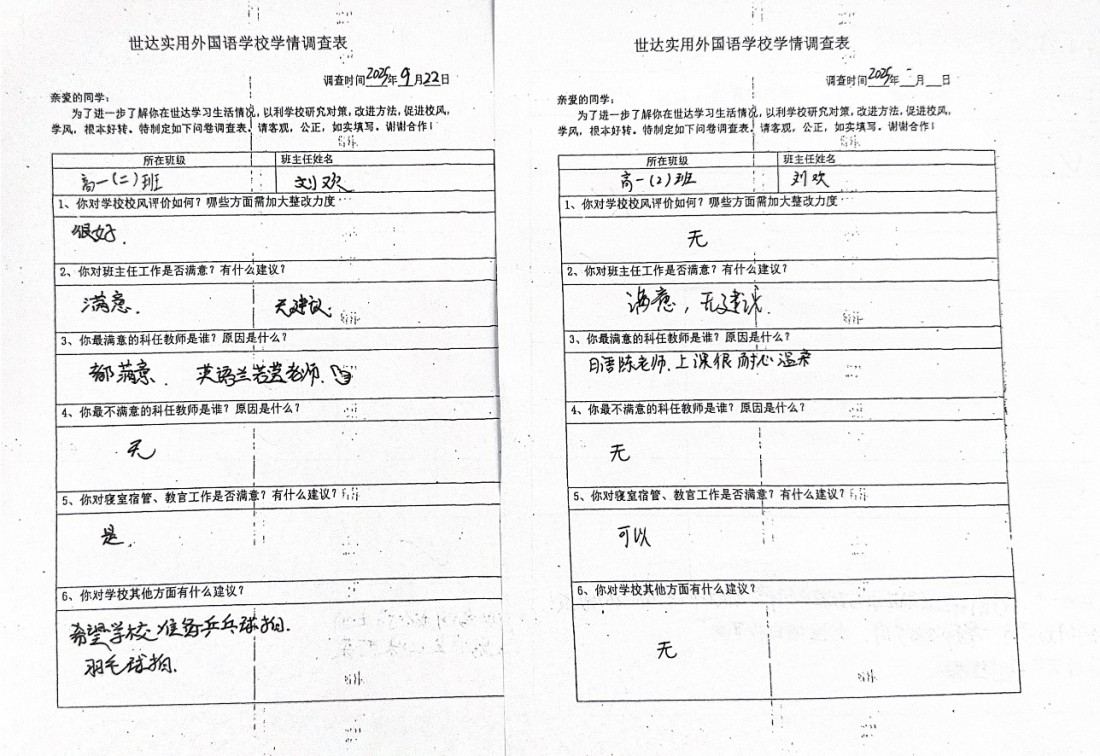 世达实用外国语学校学情调查表
调查时间2025年9月22日
亲爱的同学：
为了进一步了解你在世达学习生活情况，以利学校研究对策，改进方法，促进校风，
学风，根本好转。特制定如下问卷调查表。请客观，公正，如实填写。谢谢合作！
所在班级 班主任姓名
高一(二)班 刘欢
1、你对学校校风评价如何？哪些方面需加大整改力度
很好.
2、你对班主任工作是否满意？有什么建议？
满意. 无建议.
3、你最满意的科任教师是谁？原因是什么？
都满意. 英语兰若莹老师.
4、你最不满意的科任教师是谁？原因是什么？
无
5、你对寝室宿管、教官工作是否满意？有什么建议？
是.
6、你对学校其他方面有什么建议？
希望学校准备乒乓球拍.
羽毛球拍.
世达实用外国语学校学情调查表
调查时间2025年 月 日
亲爱的同学：
为了进一步了解你在世达学习生活情况，以利学校研究对策，改进方法，促进校风，
学风，根本好转。特制定如下问卷调查表。请客观，公正，如实填写。谢谢合作！
所在班级 班主任姓名
高一(2)班 刘欢
1、你对学校校风评价如何？哪些方面需加大整改力度
无
2、你对班主任工作是否满意？有什么建议？
满意，无建议.
3、你最满意的科任教师是谁？原因是什么？
日语陈老师.上课很耐心温柔
4、你最不满意的科任教师是谁？原因是什么？
无
5、你对寝室宿管、教官工作是否满意？有什么建议？
可以
6、你对学校其他方面有什么建议？
无